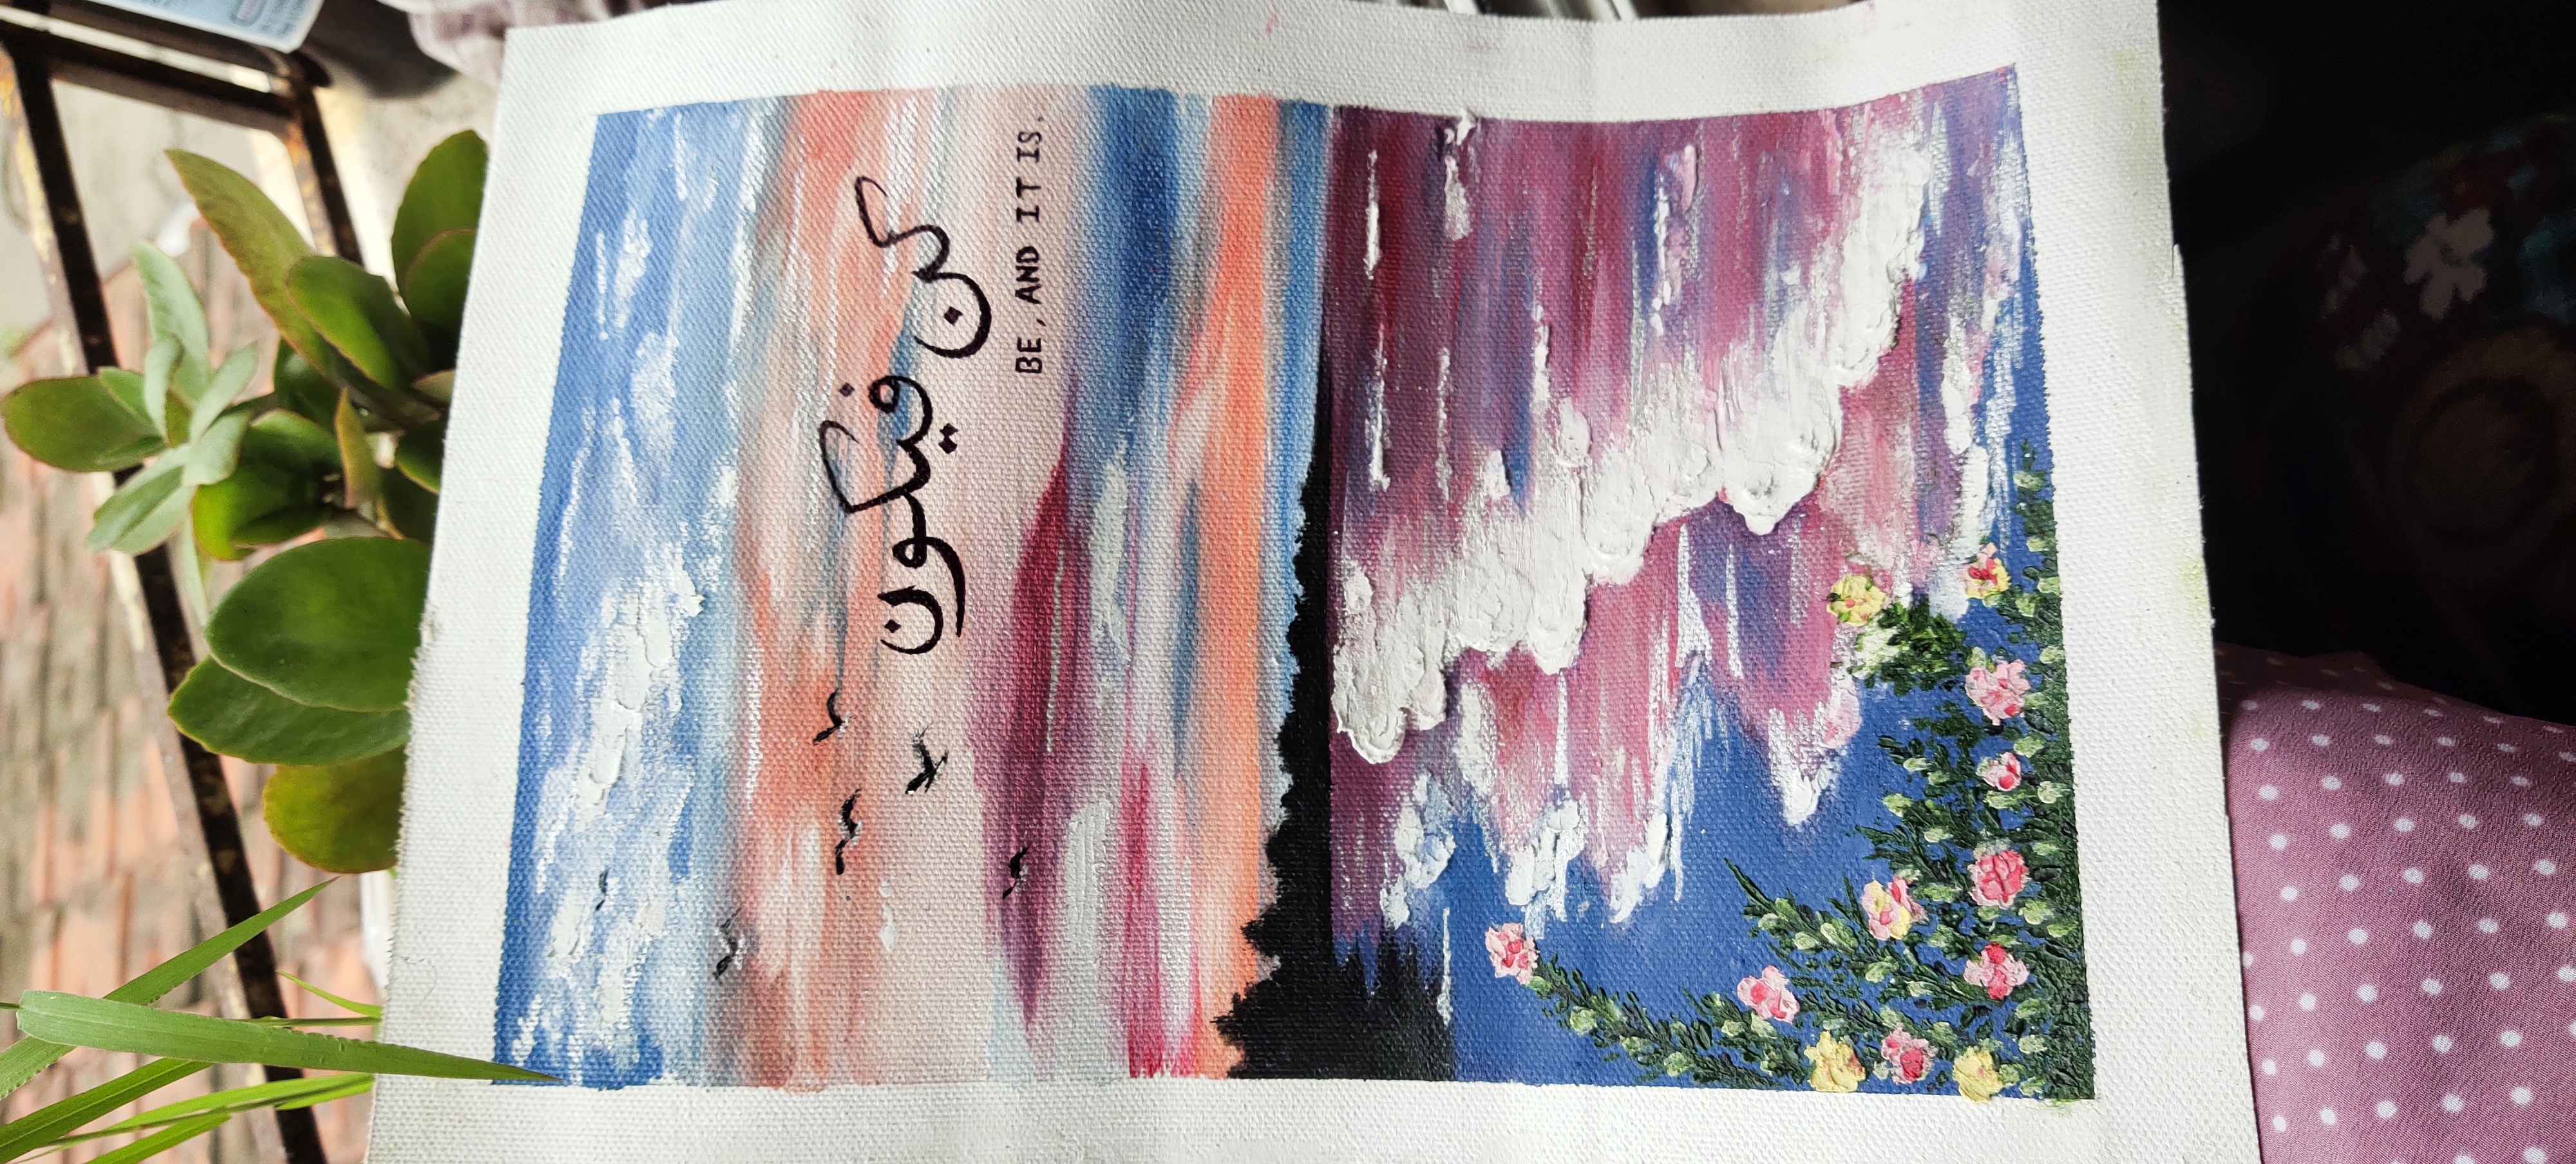 كن فيكون
BE, AND IT IS.